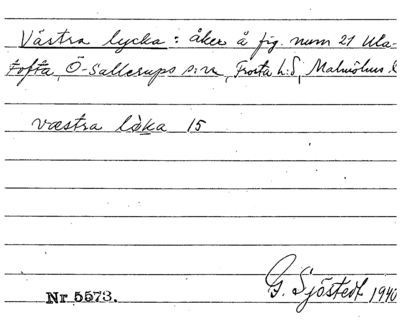 Västra lycka: åker å fig. num 21 Ula-
tofta, Ö-Sallerups s:n, Frosta h:d, Malmöhus l
væstra låka 15
G. Sjöstedt 1940
Nr 5573.